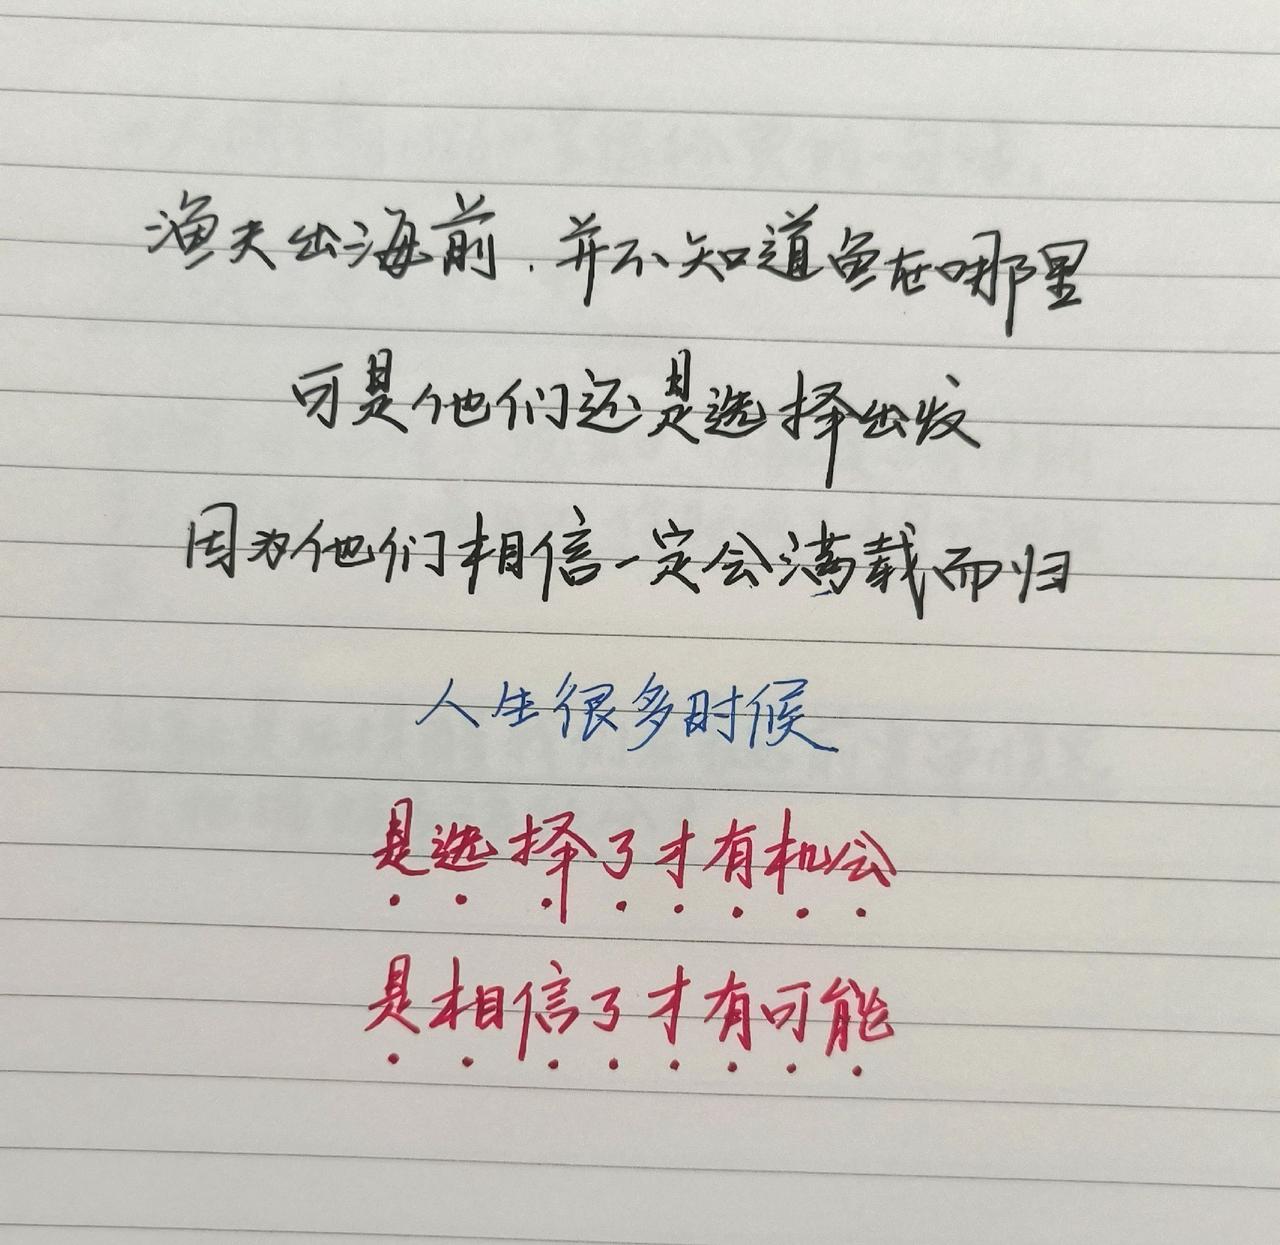 渔夫出海前.并不知道鱼在哪里
可是他们还是选择出发
因为他们相信一定会满载而归
人生很多时候
是选择了才有机会
是相信了才有可能